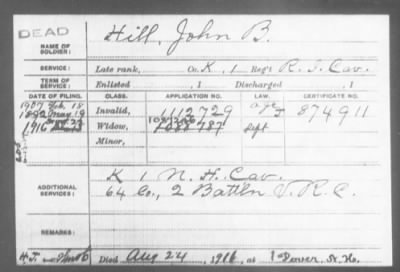 DEAD
Hill, John B.
NAME OF SOLDIER:
SERVICE: Late rank, Co. K, 1 Reg't R. I. Cav.
TERM OF SERVICE: Enlisted , 1 Discharged , 1
DATE OF FILING. CLASS. APPLICATION NO. LAW. CERTIFICATE NO.
1907 Feb. 18
1892 May 19 Invalid, 1112729 age 874911
1916 Widow, 1088787 Dept
Minor,
ADDITIONAL SERVICES: K 1 N. H. Cav.
64 Co., 2 Battln V. R. C.
REMARKS:
Died Aug 24, 1916, at